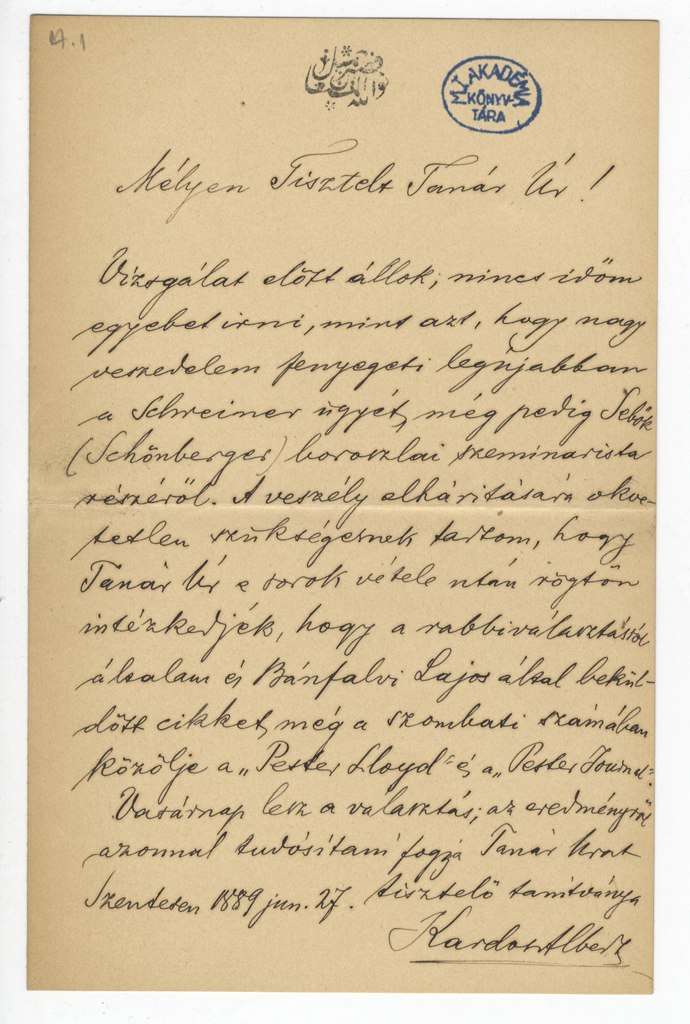 17.1
M. T. AKADÉMIA
KÖNYV-
TÁRA
Mélyen Tisztelt Tanár Úr!
Vizsgálat előtt állok; nincs időm
egyebet irni, mint azt, hogy nagy
veszedelem fenyegeti legújabban
a Schreiner ügyét, még pedig Sebők
(Schönberger) boroszlai szeminarista
részéről. A veszély elháritására okve-
tetlen szükségesnek tartom, hogy
Tanár Úr e sorok vétele után rögtön
intézkedjék, hogy a rabbiválasztásról
általam és Bánfalvi Lajos által bekül-
dött cikket, még a szombati számában
közölje a „Pester Lloyd" és a „Pester Journal".
Vasárnap lesz a valasztás; az eredményről
azonnal tudósítani fogja Tanár Urat
Szentesen 1889 jun. 27. tisztelő tanítványa
Kardos Albert